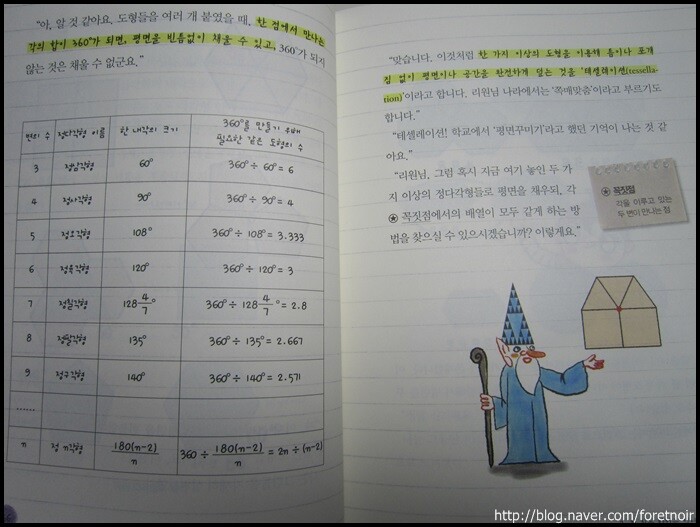 "아, 알 것 같아요. 도형들을 여러 개 붙였을 때, 한 점에서 만나는
각의 합이 360°가 되면, 평면을 빈틈없이 채울 수 있고, 360°가 되지
않는 것은 채울 수 없군요."
변의 수 정다각형 이름 한 내각의 크기 360°를 만들기 위해 필요한 같은 도형의 수
3 정삼각형 60° 360° ÷ 60° = 6
4 정사각형 90° 360° ÷ 90° = 4
5 정오각형 108° 360° ÷ 108° = 3.333
6 정육각형 120° 360° ÷ 120° = 3
7 정칠각형 128 4/7° 360° ÷ 128 4/7° = 2.8
8 정팔각형 135° 360° ÷ 135° = 2.667
9 정구각형 140° 360° ÷ 140° = 2.571
......
n 정 n각형 180(n-2)/n 360 ÷ 180(n-2)/n = 2n ÷ (n-2)
"맞습니다. 이것처럼 한 가지 이상의 도형을 이용해 틈이나 포개
짐 없이 평면이나 공간을 완전하게 덮는 것을 '테셀레이션(tessella-
tion)'이라고 합니다. 리원님 나라에서는 '쪽매맞춤'이라고 부르기도
합니다."
"테셀레이션! 학교에서 '평면꾸미기'라고 했던 기억이 나는 것 같
아요."
"리원님, 그럼 혹시 지금 여기 놓인 두 가
지 이상의 정다각형들로 평면을 채우되, 각
꼭짓점에서의 배열이 모두 같게 하는 방
법을 찾으실 수 있으시겠습니까? 이렇게요."
꼭짓점
각을 이루고 있는
두 변이 만나는 점
http://blog.naver.com/foretnoir